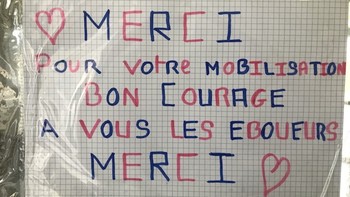 MERCI
POUR VOTRE MOBILISATION
BON COURAGE
A VOUS LES EBOUEURS
MERCI